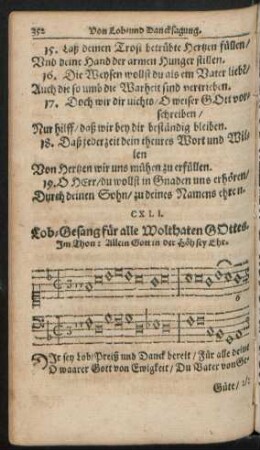 352 Von Lob/und Dancksagung.
15. Laß deinen Trost betrübte Hertzen füllen/
Vnd deine Hand der armen Hunger stillen.
16. Die Weysen wollst du als ein Vater liebe/
Auch die so umb die Warheit sind vertrieben.
17. Doch wir dir nichts/ O weiser GOtt vor-
schreiben/
Nur hilff/ daß wir bey dir beständig bleiben.
18. Daß jederzeit dein theures Wort und Wil-
len
Von Hertzen wir uns mühen zu erfüllen.
19. O HErr/ du wollst in Gnaden uns erhören/
Durch deinen Sohn/ zu deines Namens ehren.
CXLI.
Lob-Gesang für alle Wolthaten GOttes.
Im Thon: Allein Gott in der Höh sey Ehr.
DIr sey Lob/ Preiß und Danck bereit/ Für alle deine
O waarer Gott von Ewigkeit/ Du Vater von
Güte/